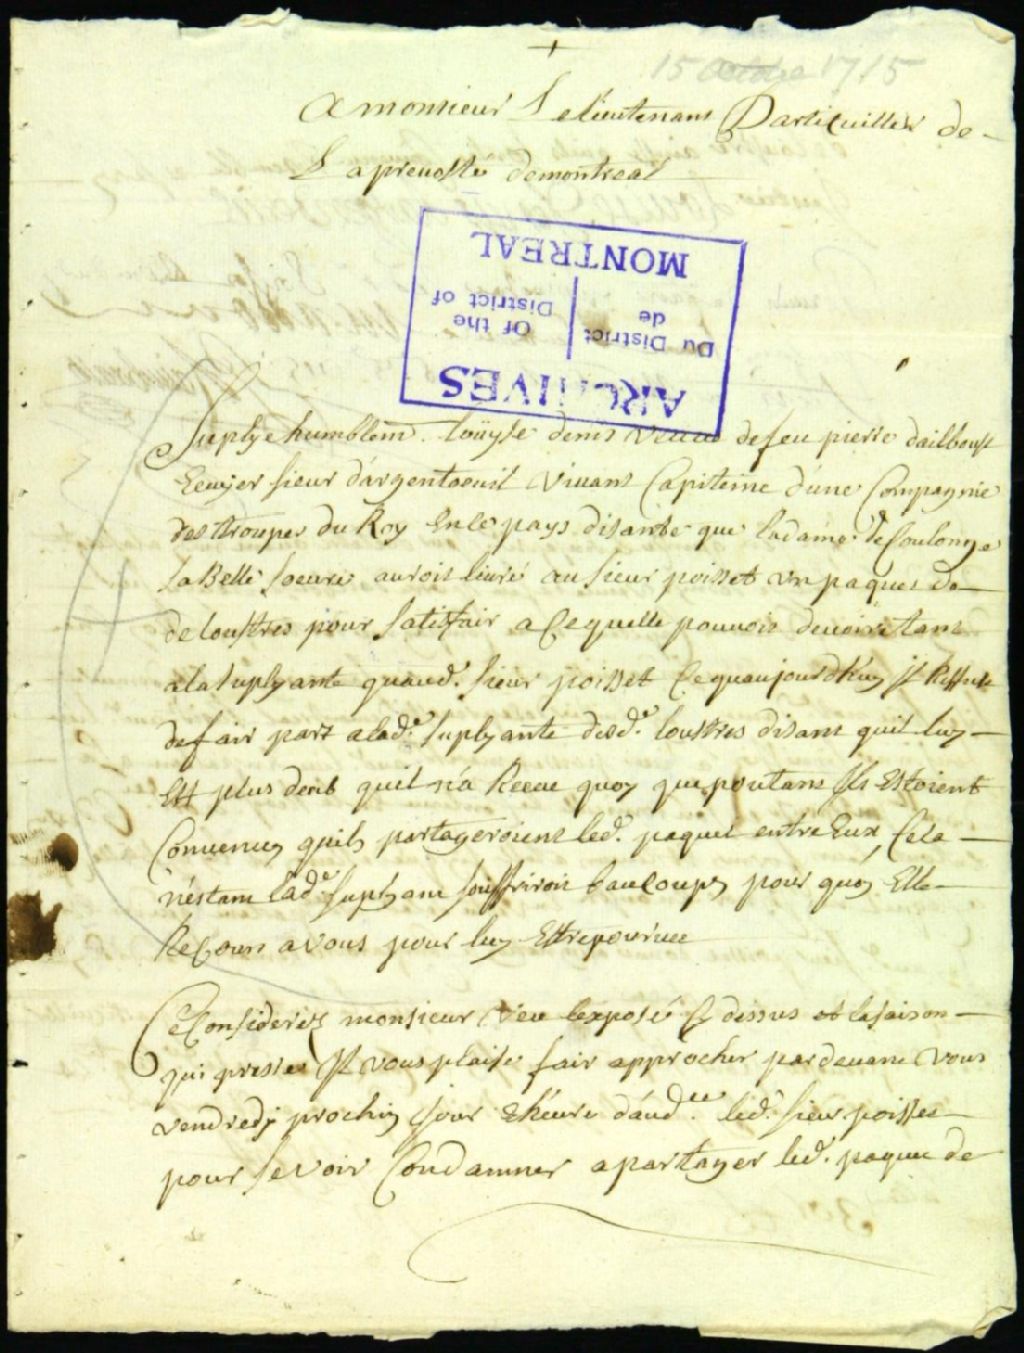 15 Octobre 1715
A monsieur Le lieutenant Particuillier de
La prevosté de montreal
ARCHIVES
Du District de
Of the District of
MONTREAL
Suplye humblemt. Loüyse denis veuve de feu pierre dailboust
Ecuyer sieur d'argenteouil vivant Capitaine d'une Compagnie
des trouppes du Roy En ce pays disante que la dame de Coulonge
sa Belle soeure auroit livré au sieur poisset un paquet de
de loustres pour satisfair a ce quelle pouvoit devoir tant
a la suplyante quaud. sieur poisset Ce quaujourdhuy Il Reffuse
de fair part a lade. suplyante desd. loustres disant quil luy
Est plus deub quil n'a Receue quoy que poutant Ils Estoient
Convenus quils partageroient led. paquet entre Eux, Cela
n'estant lade. suplyant souffriroit baucoups pour quoy Elle
Recours a vous pour luy Estre pourvue
Ce Consideréz monsieur veu lexposé Cy dessus et la saison
qui presse Il vous plaise fair approcher par devant vous
vendredy prochin jour & heure d'aud.ce led. sieur poisset
pour se voir Condamner a partager led. paquet de